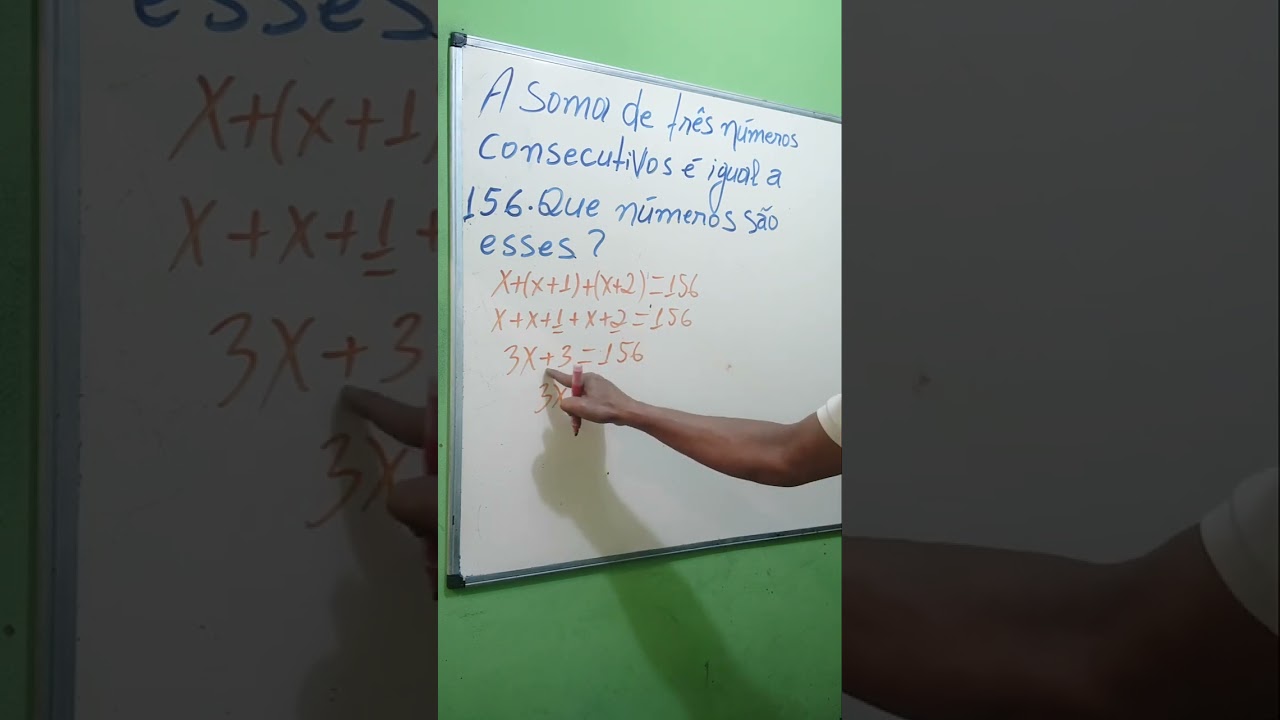 A soma de três números
consecutivos é igual a
156. Que números são
esses?
x+(x+1)+(x+2)=156
x+x+1+x+2=156
3x+3=156
3x